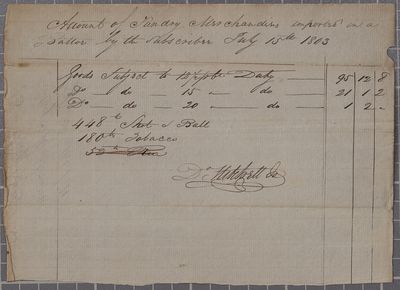 Amount of Sundry Merchandise imported in a
by the Subscriber July 15th 1803
Goods Subject to 12½ pCt Duty 95 12 8
Do do 15 do 21 1 2
Do do 20 do 1 2 -
448 lb Shot & Ball
180 lb Tobacco
Dd Mitchell